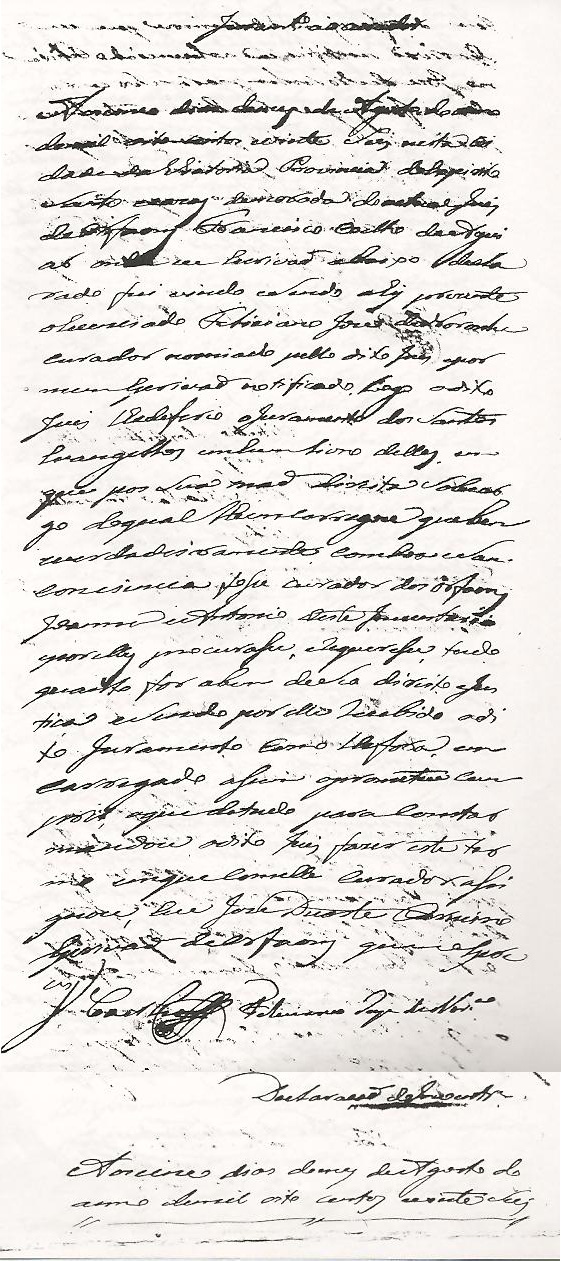 Juram.to ao curador
Aos cinco dias do mes de Agosto do anno
de mil oito centos vinte seis nesta Ci
dade da Victoria Provincia do Espirito
Santo em casas de morada do actual Juis
de Orfaons Francisco Coelho de Aqui
ar onde eu Escrivaõ abaixo decla
rado fui vindo e sendo ahi prezente
o Licenciado Feliciano Joze de Noronha
curador nomiado pello dito Juis e por
mim Escrivaõ notificado logo o dito
Juis lhe deferio o Juramento dos Santos
Evangelhos em hum livro delles em
que pos sua maõ direita sob car
go do qual lhe encarregou que bem
e verdadeiramente com boa e san
conciencia fose curador dos orfaons
Joanna e Antonio deste Inventario
e por elles procurase, e requerese, tudo
quanto for a bem de seo direito e Jus
tica e sendo por elle recebido o di
to Juramento como lhe fora en
carregado asim o prometeu cum
prir, e que de tudo para constar
mandou o dito Juis fazer este ter
mo em que com elle curador asi
gnou, Eu Joze Duarte Carneiro
Escrivaõ de Orfaons que o escre
vy
Coelho Feliciano Joze de Nor.ª
Declaracaõ do Invent.
Aos cinco dias do mes de Agosto do
anno de mil oito centos vinte seis